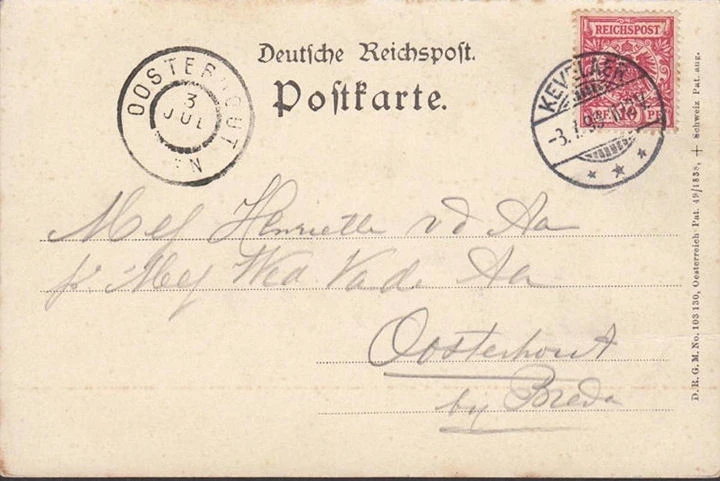 Deutsche Reichspost.
Postkarte.
OOSTERHOUT
3
JUL
REICHSPOST
10
KEVELAER
Mej Henriette vd Aa
p/ Mej Wed Van de Aa
Oosterhout
by Breda
D. R. G. M. No. 103 130, Oesterreich Pat. 49/1838, + Schweiz Pat. aug.